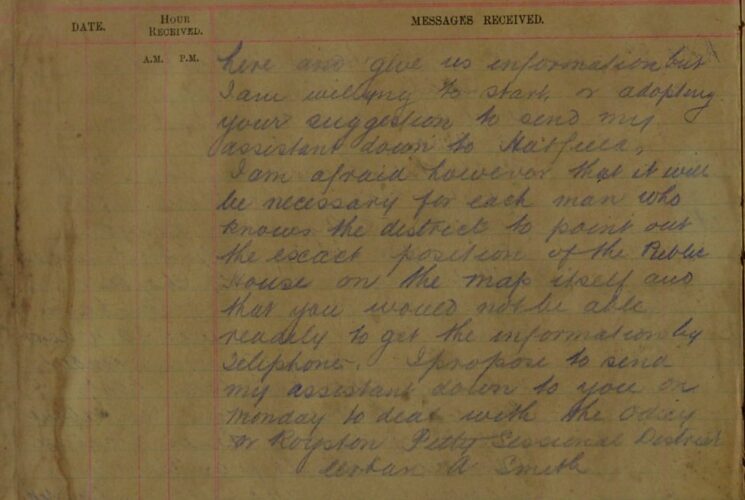 DATE.
HOUR RECEIVED.
MESSAGES RECEIVED.
A.M. P.M.
here and give us information but
I am willing to start or adopting
your suggestion to send my
assistant down to Hatfield,
I am afraid however that it will
be necessary for each man who
knows the district to point out
the exact position of the Public
House on the map itself and
that you would not be able
readily to get the information by
Telephone. I propose to send
my assistant down to you on
Monday to deal with the Odsey
or Royston Petty Sessional District
Urban A Smith